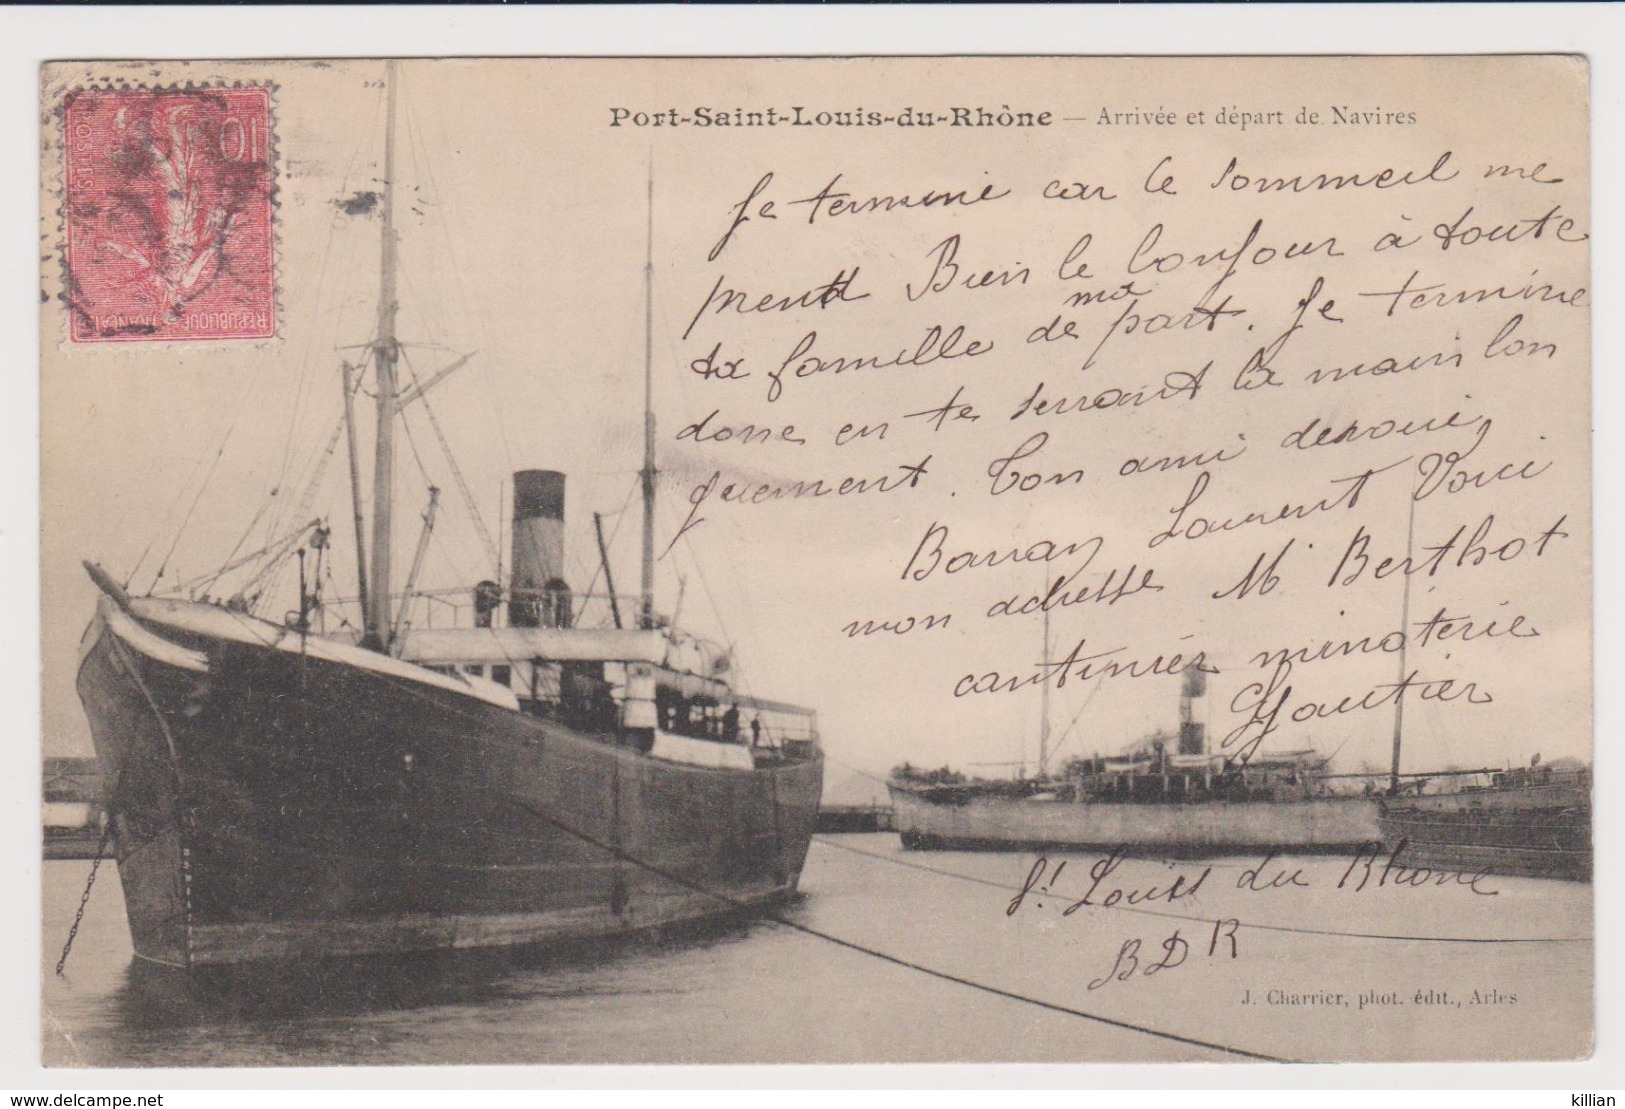 Port-Saint-Louis-du-Rhône — Arrivée et départ de Navires
10
POSTES
REPUBLIQUE FRANÇAISE
Je termine car le sommeil me
prend Bien le bonjour à toute
ta famille de ma part. Je termine
donc en te serrant la main lon
guement. Ton ami devoué
Barray Laurent Voici
mon adresse M Berthot
cantinier minoterie
Gautier
St Louis du Rhone
BDR
J. Charrier, phot. édit., Arles
delcampe.net
killian